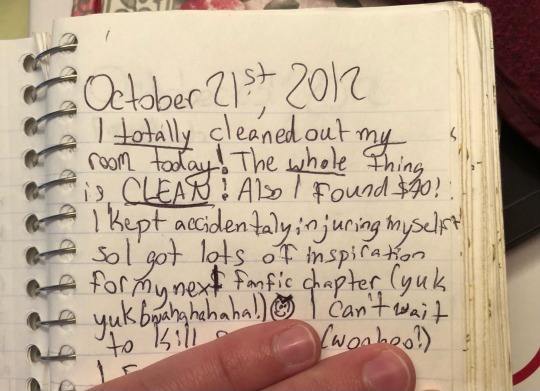 October 21st, 2012
I totally cleaned out my
room today! The whole thing
is CLEAN! Also I found $40!
I kept accidentaly injuring myself
so I got lots of inspiration
for my next fanfic chapter (yuk
yuk bwahahahaha!) I can't wait
to kill (woohoo!)
I